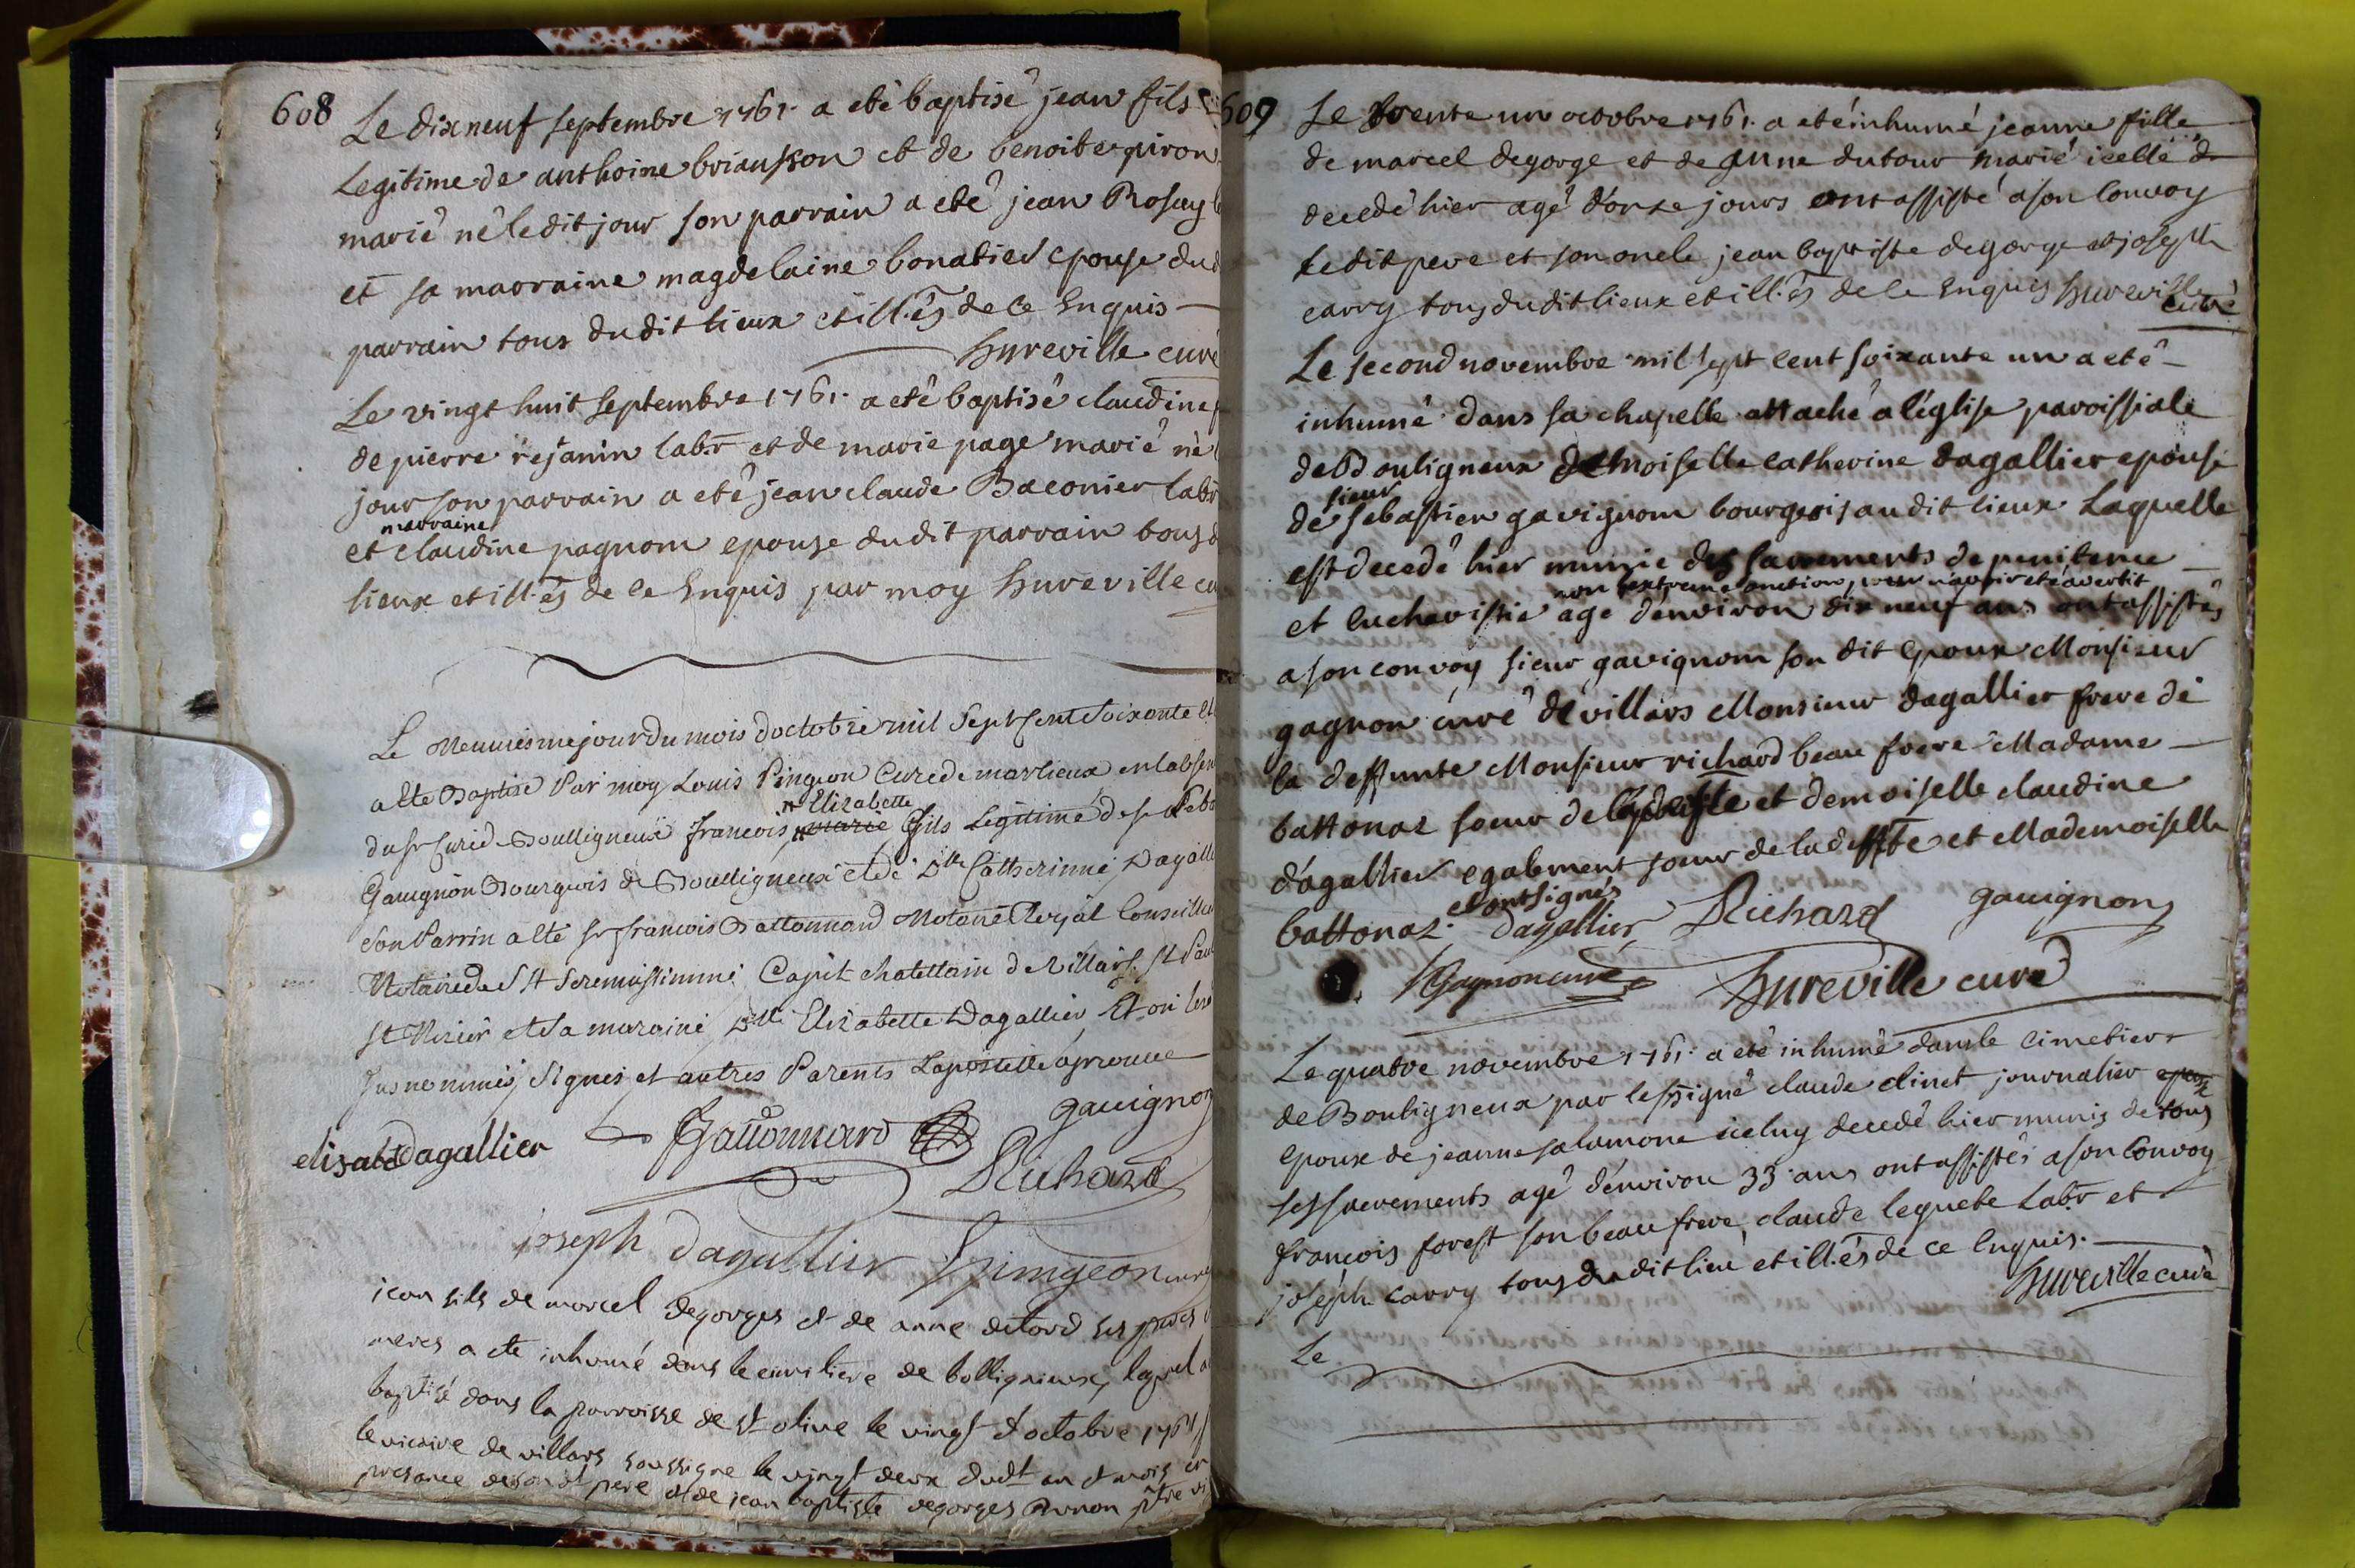 608
Le dix neuf septembre 1761. a eté baptisé jean fils
Legitime de anthoine briansson et de benoite piron
marié né le dit jour son parrain a eté jean Rosay
et sa marraine magdelaine bonatier epouse dud
parrain tous du dit lieux et illés de ce Enquis
hureville curé
Le vingt huit septembre 1761. a eté baptisé claudine
de pierre rejanin labr et de marie page marié né
jour son parrain a eté jean claude Baconier labr
marraine
et claudine pagnom epouse du dit parrain tous d
lieux et illés de ce Enquis par moy hureville cu
Le Neuuiesme jour du mois doctobre mil Sept Cent Soixante et
a Ete Baptise Par moy Louis Pingeon Cure de marlieux en labsen
Elizabette
du sr Curé de Boulligneux francois marie fils Legitime de sr Seba
Gauignon Bourgeois de Boulligneux et de Dlle Catherinne Dagalli
Son Parrin a Eté sr francois Battonnard Notaire Royal Conseiller
Notaire de S A Serenissimme Capit chatellain de Villars St Paul
St Nizier et Sa maraine Dlle Elizabette Dagallier Et on les
susnommés signes et autres Parents Lapostille aprouue
elisabet dagallier
Battonnard
gauignon
Richard
joseph dagallier
Lpingeon cure
jean fils de marcel degorges et de anne dutord ses peres
meres a ete inhumé dans le cimetiere de bolligneux, lequel a
baptisé dans la parroisse de st olive le vingt d octobre 1761
le vicaire de villars soussigne le vingt deux dudt an et mois en
presance de son dt pere et de jean baptiste degorges Arnon ptre vi
609
Le trente un octobre 1761. a eté inhumé jeanne fille
de marcel degorge et de anne dutour marié icelle
decedé hier agé d'onze jours ont assisté a son Convoy
ledit pere et son oncle jean baptiste degorge et joseph
carry tous du dit lieux et illés de ce Enquis hureville
curé
Le second novembre mil sept cent soixante un a eté
inhumé dans sa chapelle attaché a léglise paroissiale
de Bouligneux demoiselle catherine dagallier epouse
sieur
de sebastien gavignom bourgeois au dit lieux Laquelle
est decedé hier munie des sacrements de penitence
non lextreme onction, pour navoir eté avertit
et Eucharistie agé d'environ dix neuf ans ont assistés
a son convoy sieur gavignom son dit Epoux Monsieur
gagnon curé de villars Monsieur dagallier frere de
la deffunte Monsieur richard beau frere Madame
battonaz soeur de et demoiselle claudine
dagallier egalement soeur de la deffte et Mademoiselle
et ont signés
battonaz. dagallier Richard gauignon
Gagnon curé hureville curé
Le quatre novembre 1761. a eté inhumé dans le cimetiere
de Bouligneux par le ssigné claude clinet journalier epoux
epoux de jeanne salamone iceluy decedé hier munis de tous
ses sacrements agé d'environ 33 ans ont assistés a son Convoy
francois forest son beau frere, claude lequebe Labr et
joseph carry tous du dit lieu et illés de ce Enquis.
hureville curé
Le